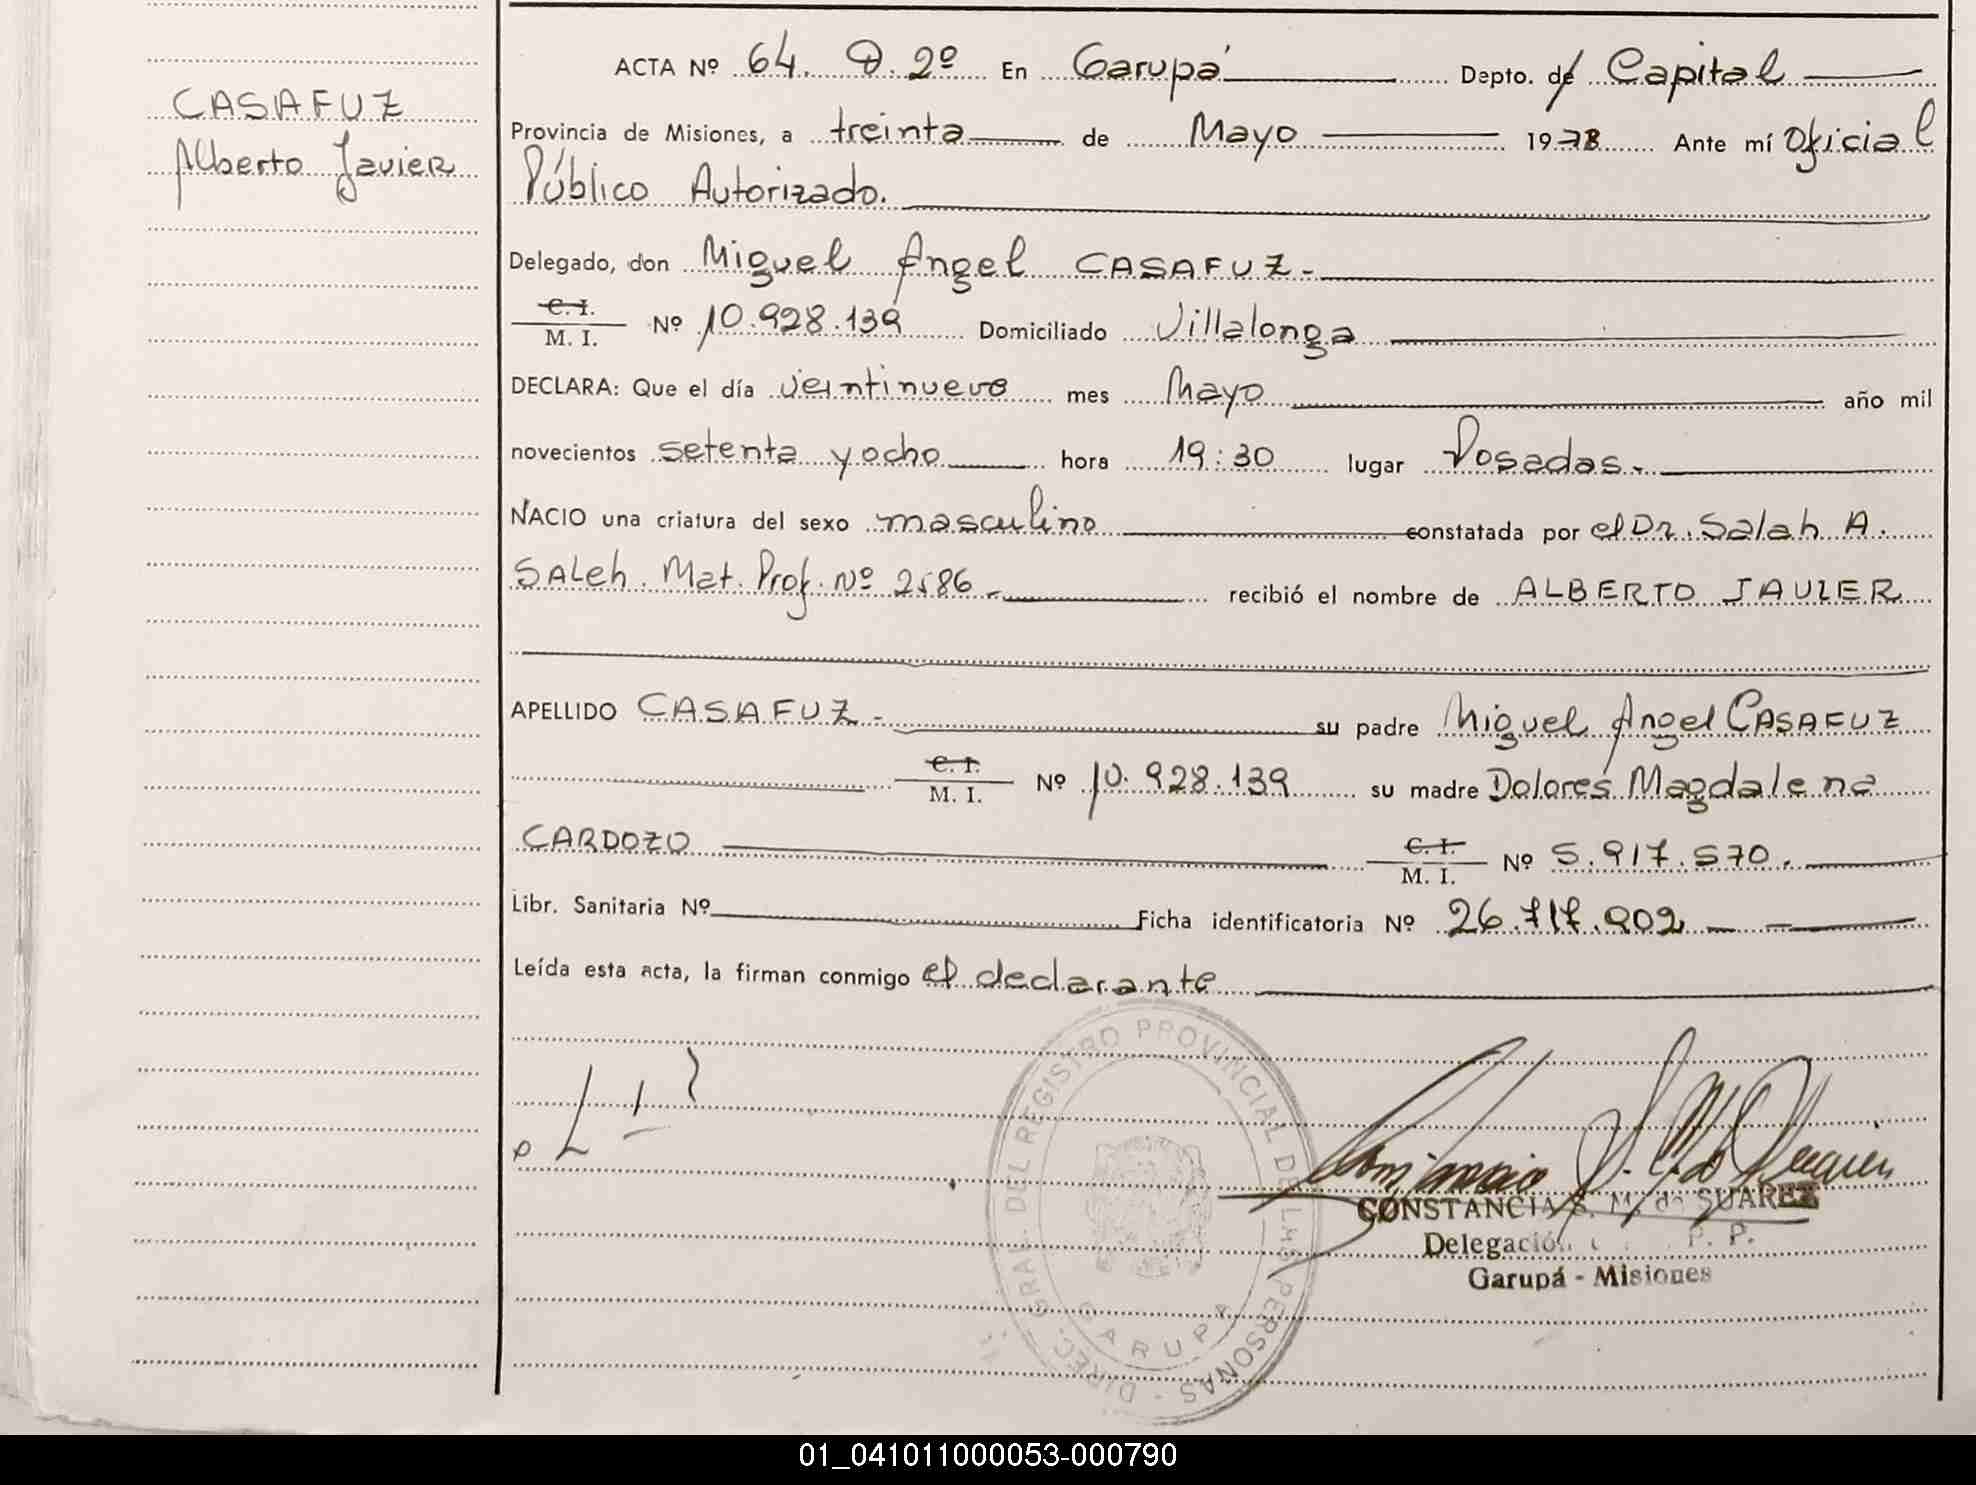 CASAFUZ
Alberto Javier
ACTA Nº 64. D. 2º En Garupá Depto. de Capital
Provincia de Misiones, a treinta de Mayo 1978 Ante mí Oficial
Público Autorizado.
Delegado, don Miguel Angel CASAFUZ.-
C. I.
M. I. Nº 10.928.139 Domiciliado Villalonga
DECLARA: Que el día veintinueve mes Mayo año mil
novecientos setenta y ocho hora 19:30 lugar Posadas.-
NACIO una criatura del sexo masculino constatada por el Dr. Salah A.
SALeh. Mat. Prof. Nº 2586.- recibió el nombre de ALBERTO JAVIER
APELLIDO CASAFUZ.- su padre Miguel Angel CASAFUZ
C. I.
M. I. Nº 10.928.139 su madre Dolores Magdalena
CARDOZO C. I.
M. I. Nº 5.917.570.
Libr. Sanitaria Nº Ficha identificatoria Nº 26.717.902
Leída esta acta, la firman conmigo el declarante
DIREC. GRAL. DEL REGISTRO PROVINCIAL DE LAS PERSONAS
GARUPA
CONSTANCIA S. M. de SUAREZ
Delegación P. P.
Garupá - Misiones
01_041011000053-000790